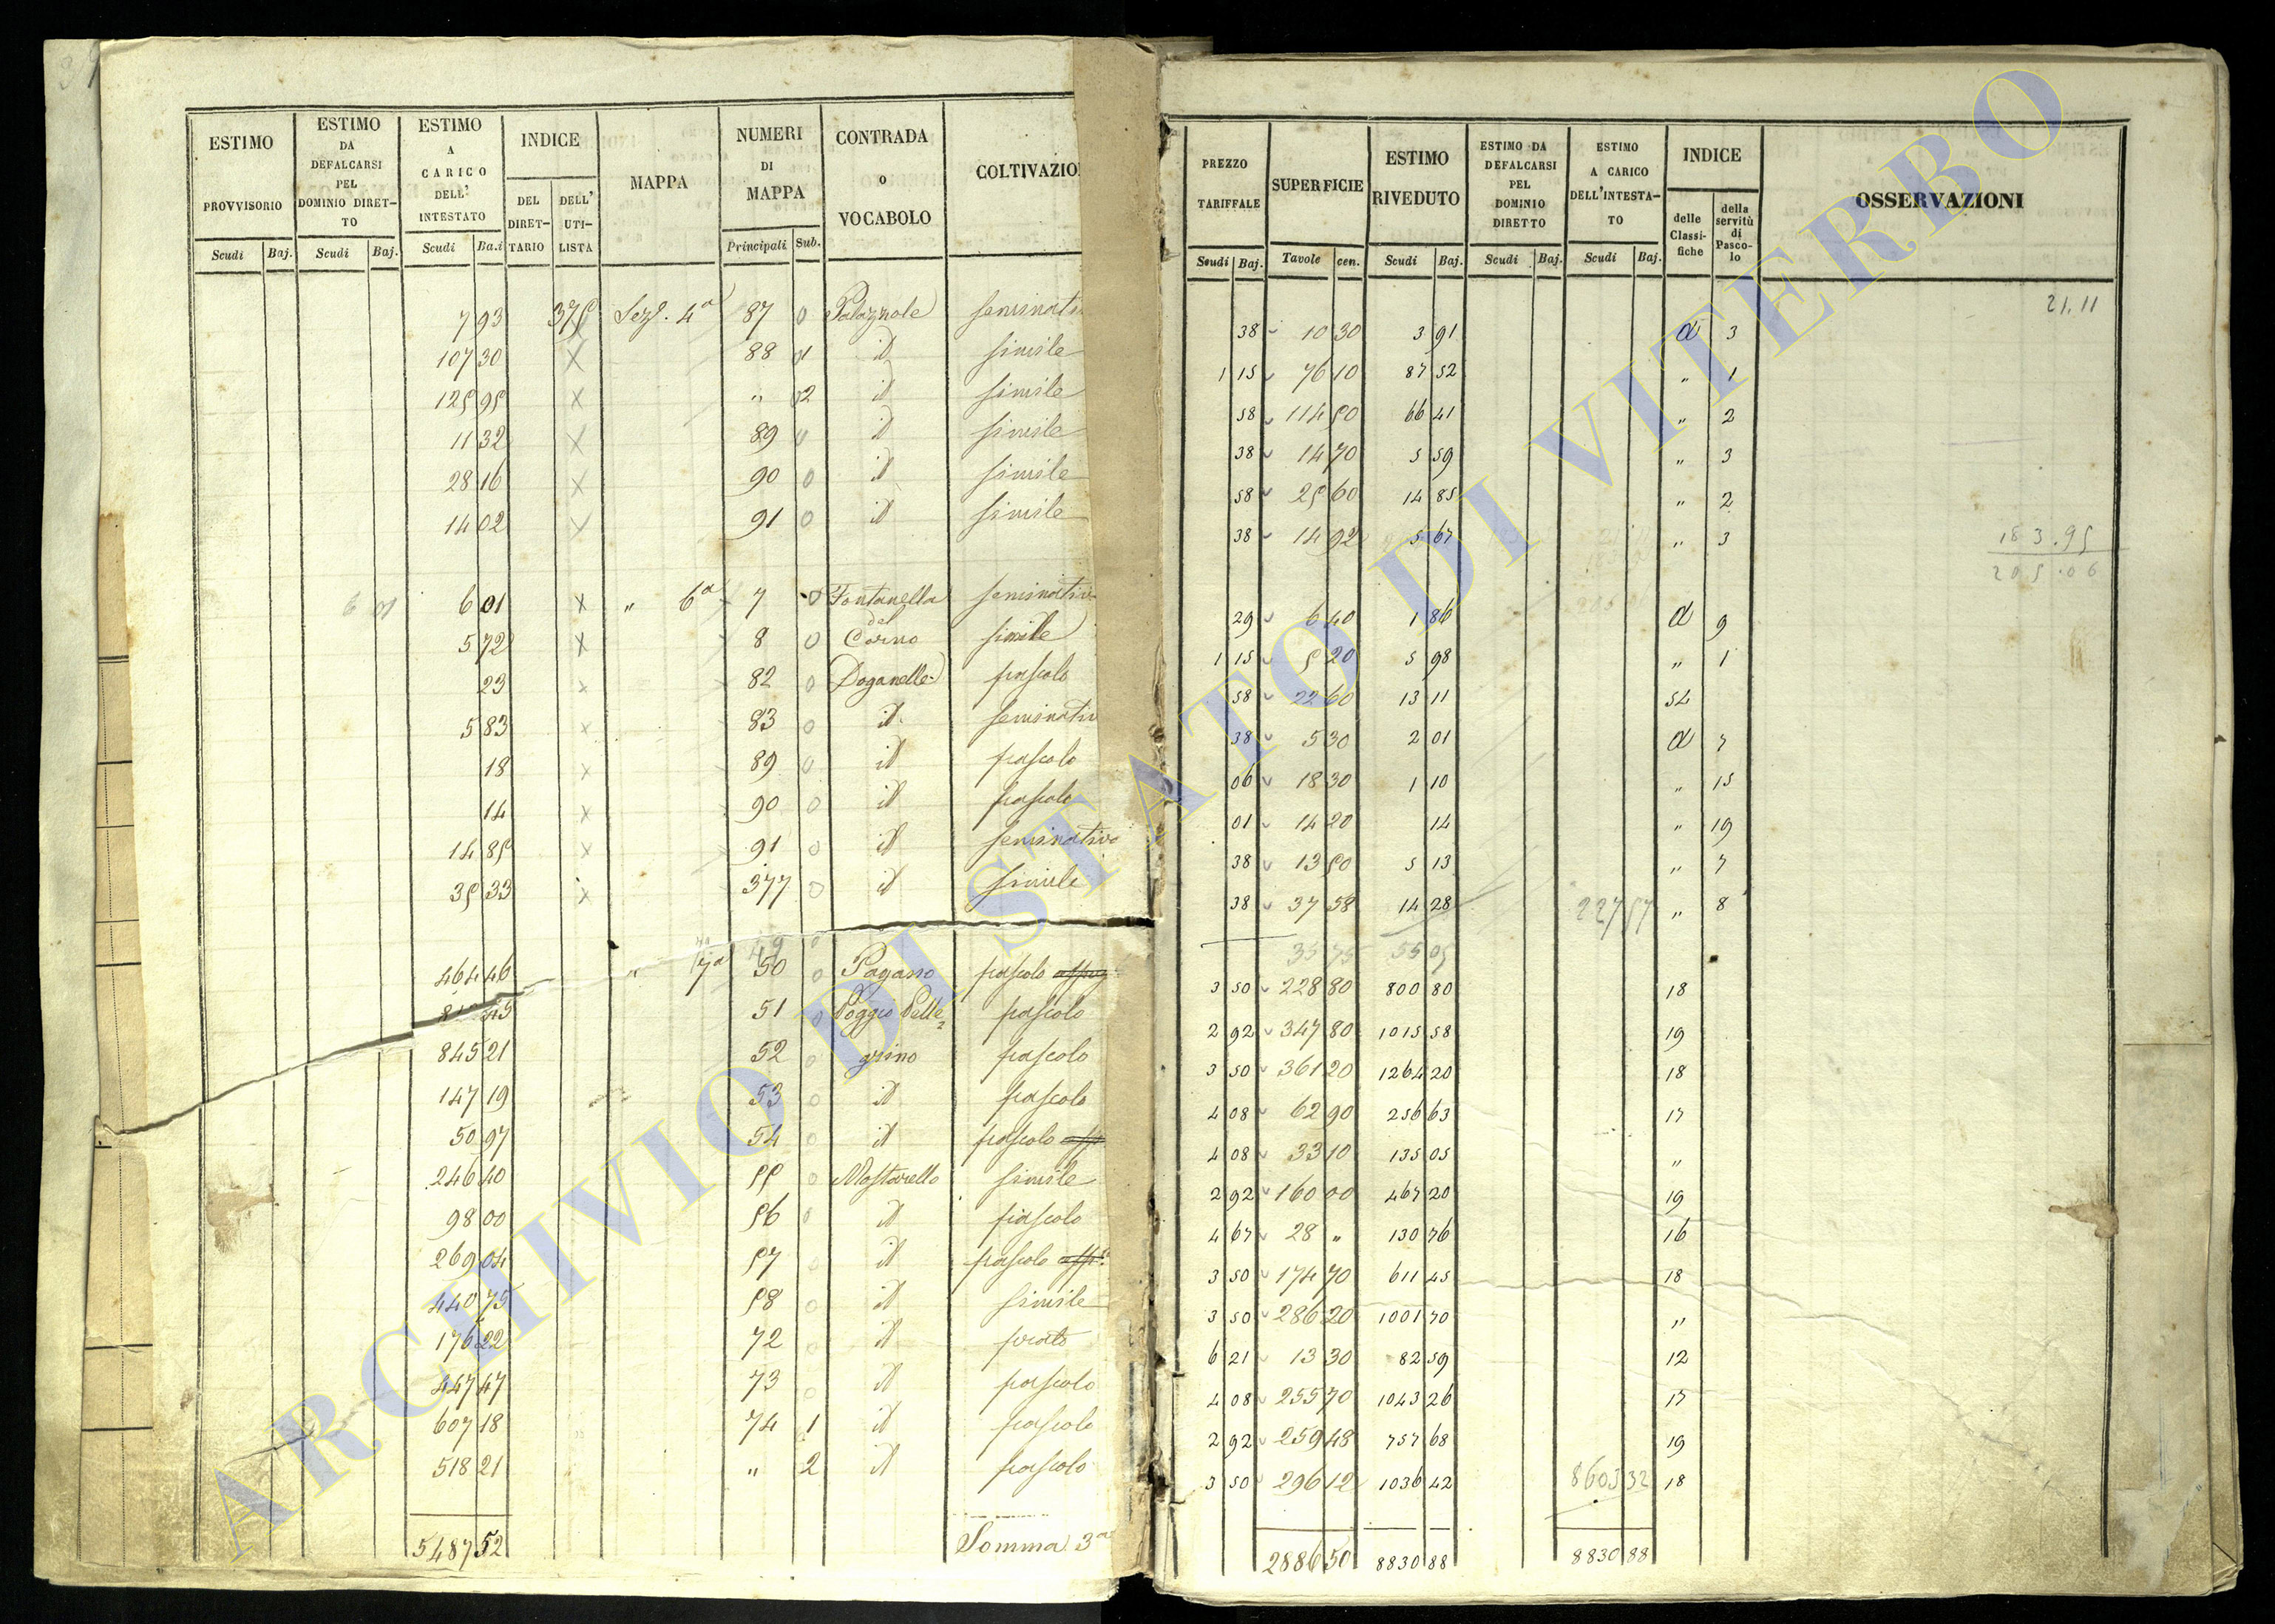 ESTIMO PROVVISORIO Scudi Baj.
ESTIMO DA DEFALCARSI PEL DOMINIO DIRET- TO Scudi Baj.
ESTIMO A CARICO DELL' INTESTATO Scudi Ba.i
INDICE DEL DIRET- TARIO DELL' UTI- LISTA
MAPPA
NUMERI DI MAPPA Principali Sub.
CONTRADA o VOCABOLO
COLTIVAZIO
7 93 375 Sez. 4a 87 0 seminati
107 30 X 88 1 id simile
125 95 X " 2 id simile
11 32 X 89 0 id simile
28 16 X 90 0 id simile
14 02 X 91 0 id simile
6 01 X " 6a 7 0 Fontanella seminativ
5 72 X 8 0 del Corno simile
23 X 82 0 Doganelle pascolo
5 83 X 83 0 id seminativ
18 X 89 0 id pascolo
14 X 90 0 id pascolo
14 85 X 91 0 id seminativo
35 33 X 377 0 id simile
49 0
464 46 " 7a 50 0 Pagano pascolo
45 51 0 Poggio Pelle= pascolo
845 21 52 0 grino pascolo
147 19 53 0 id pascolo
50 97 54 0 id pascolo
246 40 55 0 Mostarello simile
98 00 56 0 id pascolo
269 04 57 0 id pascolo
440 75 58 0 id simile
176 22 72 0 id prato
447 47 73 0 id pascolo
607 18 74 1 id pascolo
518 21 " 2 id pascolo
5487 52 Somma 3a
PREZZO TARIFFALE Scudi Baj.
SUPERFICIE Tavole cen.
ESTIMO RIVEDUTO Scudi Baj.
ESTIMO DA DEFALCARSI PEL DOMINIO DIRETTO Scudi Baj.
ESTIMO A CARICO DELL'INTESTA- TO Scudi Baj.
INDICE delle Classi- fiche della servitù di Pasco- lo
OSSERVAZIONI
21.11
38 10 30 3 91 a 3
1 15 76 10 87 52 " 1
58 114 50 66 41 " 2
38 14 70 5 59 " 3
58 25 60 14 85 " 2
38 14 92 5 67 " 3
183.95
205.06
29 6 40 1 86 a 9
1 15 5 20 5 98 " 1
58 22 60 13 11 54
38 5 30 2 01 a 7
06 18 30 1 10 " 15
01 14 20 14 " 19
38 13 50 5 13 " 7
38 37 58 14 28 227 57 " 8
35 75 55 05
3 50 228 80 800 80 18
2 92 347 80 1015 58 19
3 50 361 20 1264 20 18
4 08 62 90 256 63 17
4 08 33 10 135 05 "
2 92 160 00 467 20 19
4 67 28 " 130 76 16
3 50 174 70 611 45 18
3 50 286 20 1001 70 "
6 21 13 30 82 59 12
4 08 255 70 1043 26 17
2 92 259 48 757 68 19
3 50 296 12 1036 42 8603 32 18
2886 50 8830 88 8830 88
ARCHIVIO DI STATO DI VITERBO